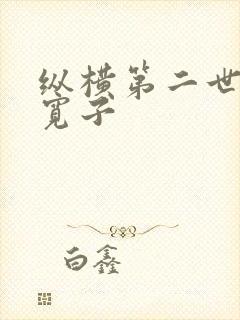 纵横第二世
宽子
白鑫